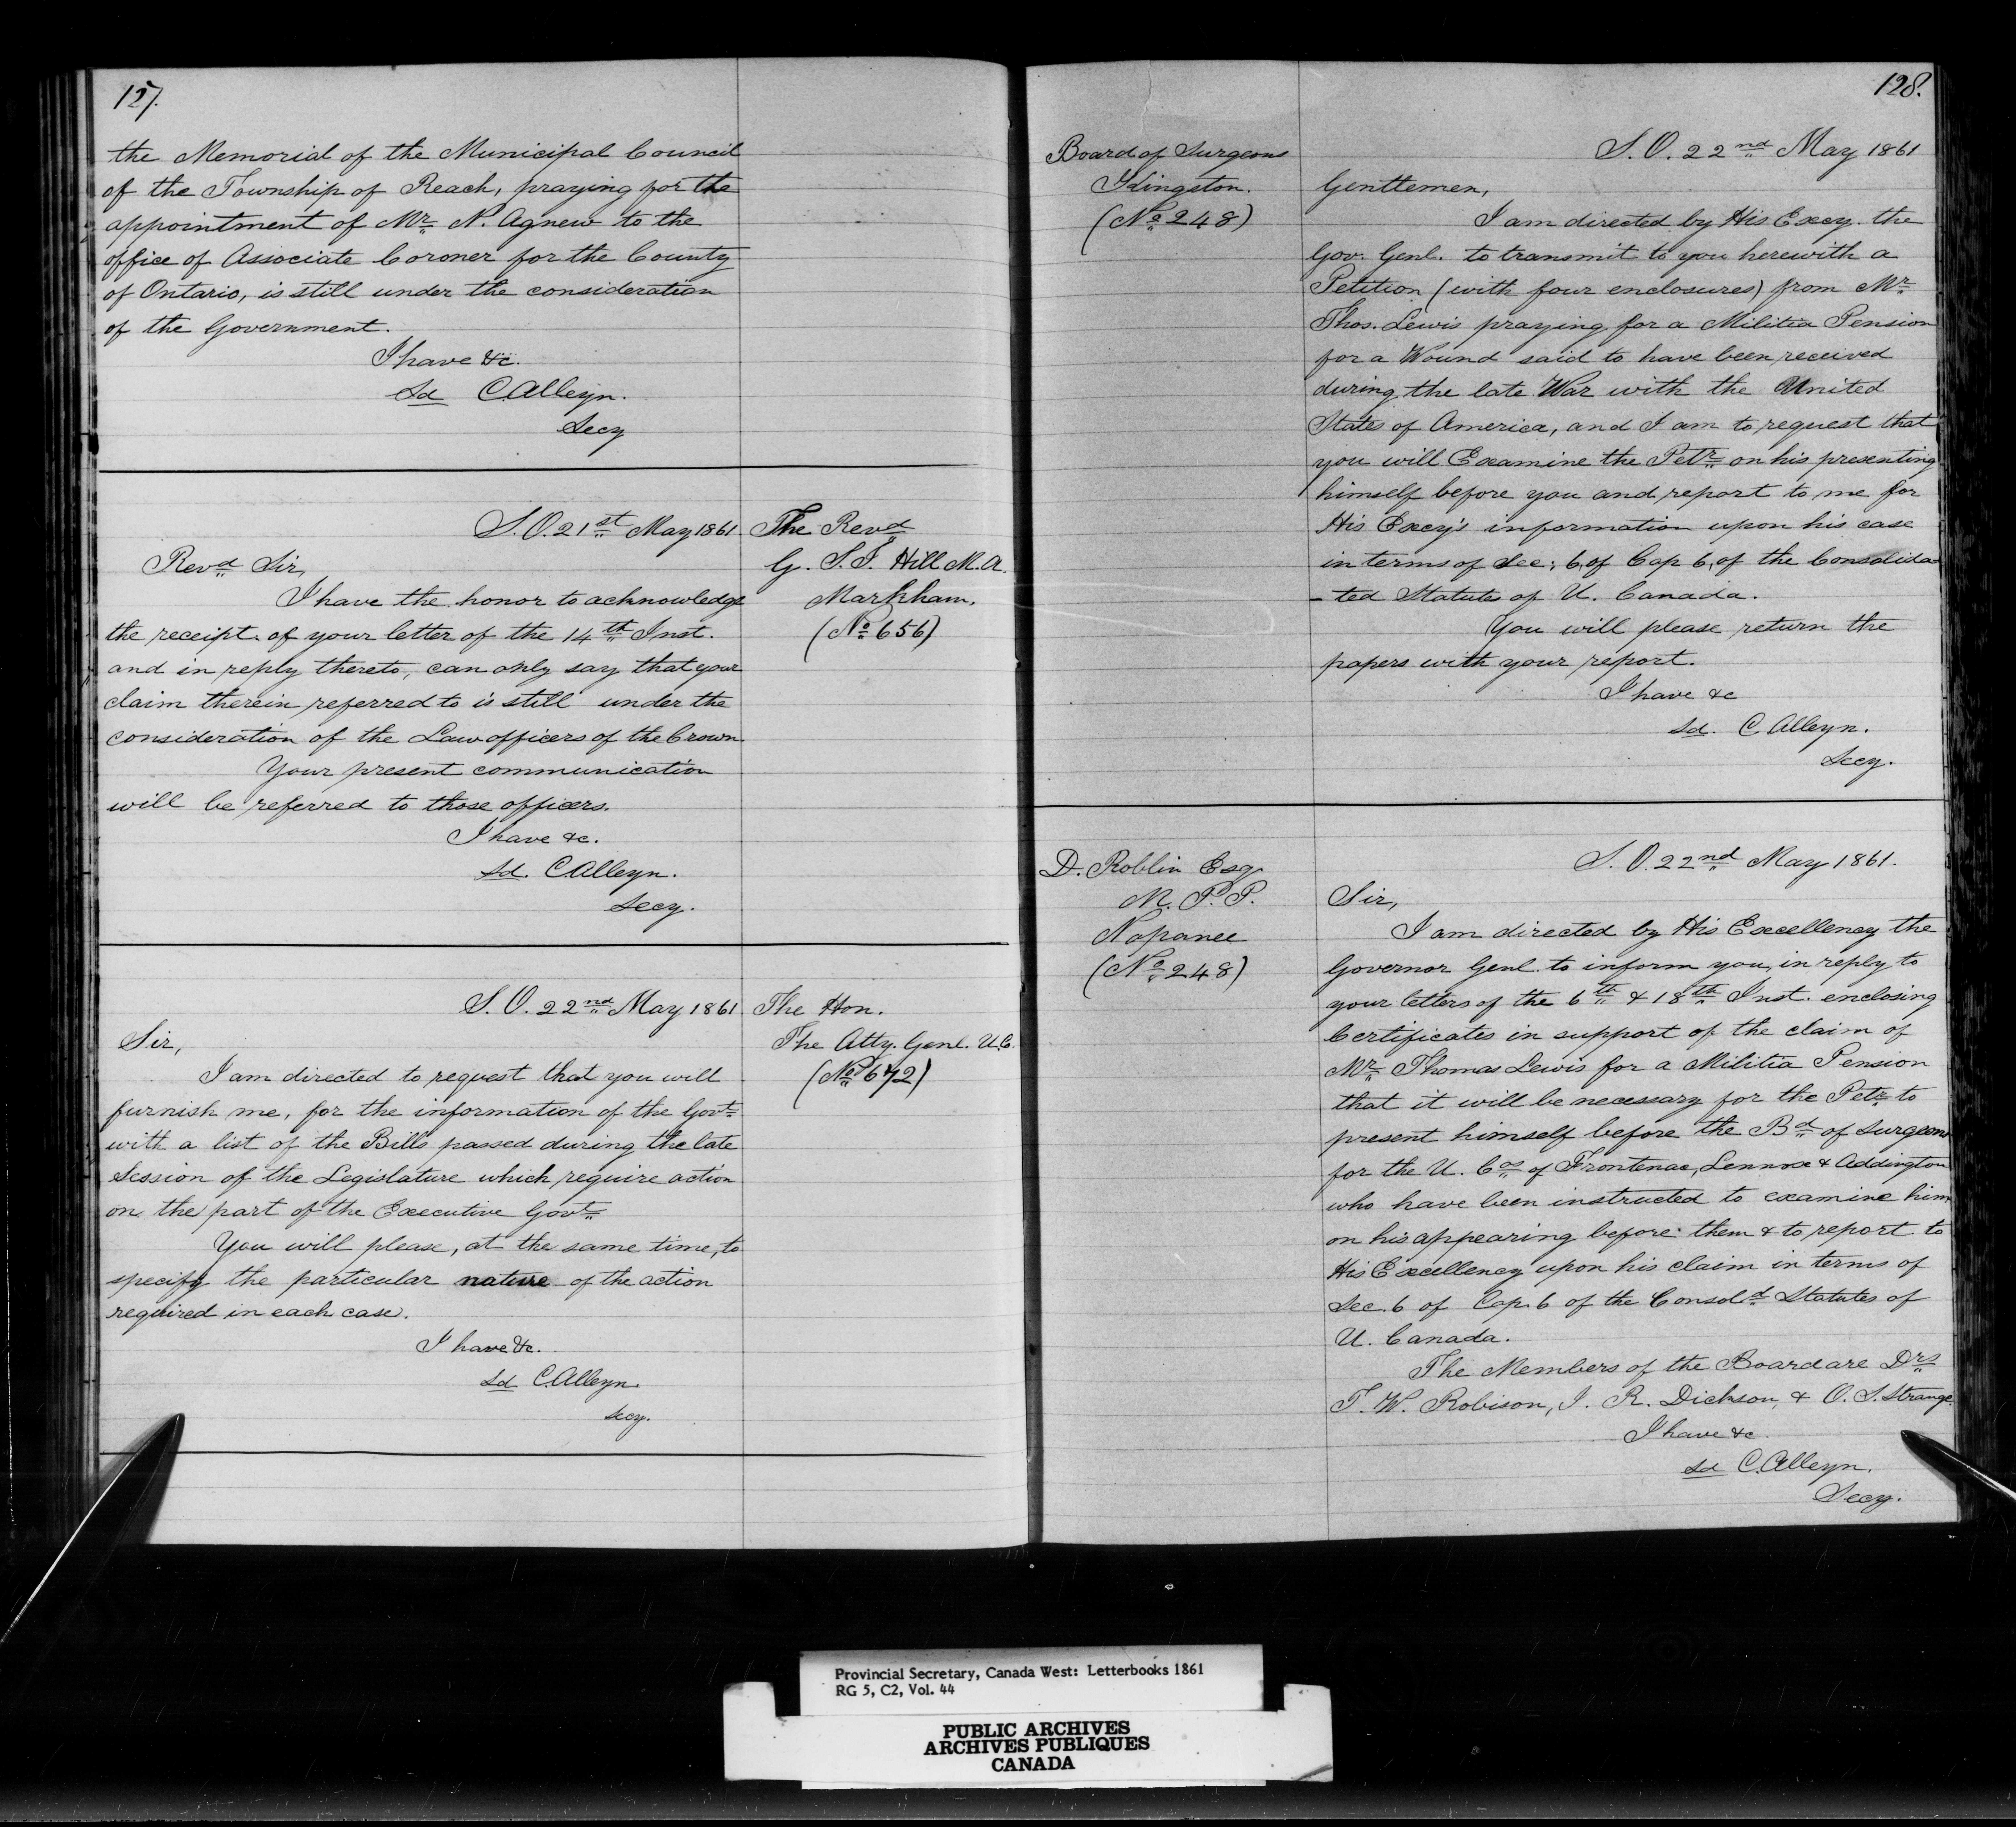 127.
the Memorial of the Municipal Council
of the Township of Reach, praying for the
appointment of Mr. N. Agnew to the
office of Associate Coroner for the County
of Ontario, is still under the consideration
of the Government.
I have &c.
Sd C. Alleyn.
Secy
S.O. 21st May 1861
The Revd
G. S. J. Hill M.A.
Markham.
(No 656)
Revd Sir,
I have the honor to acknowledge
the receipt of your letter of the 14th Inst.
and in reply thereto, can only say that your
claim therein referred to is still under the
consideration of the Law officers of the Crown.
Your present communication
will be referred to those officers.
I have &c.
Sd. C. Alleyn.
Secy.
S.O. 22nd May 1861
The Hon.
The Atty. Genl. U.C.
(No 672)
Sir,
I am directed to request that you will
furnish me, for the information of the Govt
with a list of the Bills passed during the late
Session of the Legislature which require action
on the part of the Executive Govt
You will please, at the same time, to
specify the particular nature of the action
required in each case.
I have &c.
Sd C. Alleyn.
Secy.
128.
Board of Surgeons
Kingston.
(No 248)
S.O. 22nd May 1861
Gentlemen,
I am directed by His Excy. the
Gov. Genl. to transmit to you herewith a
Petition (with four enclosures) from Mr
Thos. Lewis praying for a Militia Pension
for a Wound said to have been received
during the late War with the United
States of America, and I am to request that
you will Examine the Petr on his presenting
himself before you and report to me for
His Excy's information upon his case
in terms of Sec: 6, of Cap 6, of the Consolida-
-ted Statutes of U. Canada.
You will please return the
papers with your report.
I have &c
Sd. C. Alleyn.
Secy.
D. Roblin Esq.
M.P.P.
Napanee
(No 248)
S.O. 22nd May 1861.
Sir,
I am directed by His Excellency the
Governor Genl. to inform you, in reply to
your letters of the 6th & 18th Inst. enclosing
Certificates in support of the claim of
Mr Thomas Lewis for a Militia Pension
that it will be necessary for the Petr to
present himself before the Bd of Surgeons
for the U. Cos of Frontenac, Lennox & Addington
who have been instructed to examine him
on his appearing before them & to report to
His Excellency upon his claim in terms of
Sec. 6 of Cap. 6 of the Consold Statutes of
U. Canada.
The Members of the Board are Drs
T. W. Robison, J. R. Dickson, & O. S. Strange.
I have &c
Sd C. Alleyn.
Secy.
Provincial Secretary, Canada West: Letterbooks 1861
RG 5, C2, Vol. 44
PUBLIC ARCHIVES
ARCHIVES PUBLIQUES
CANADA